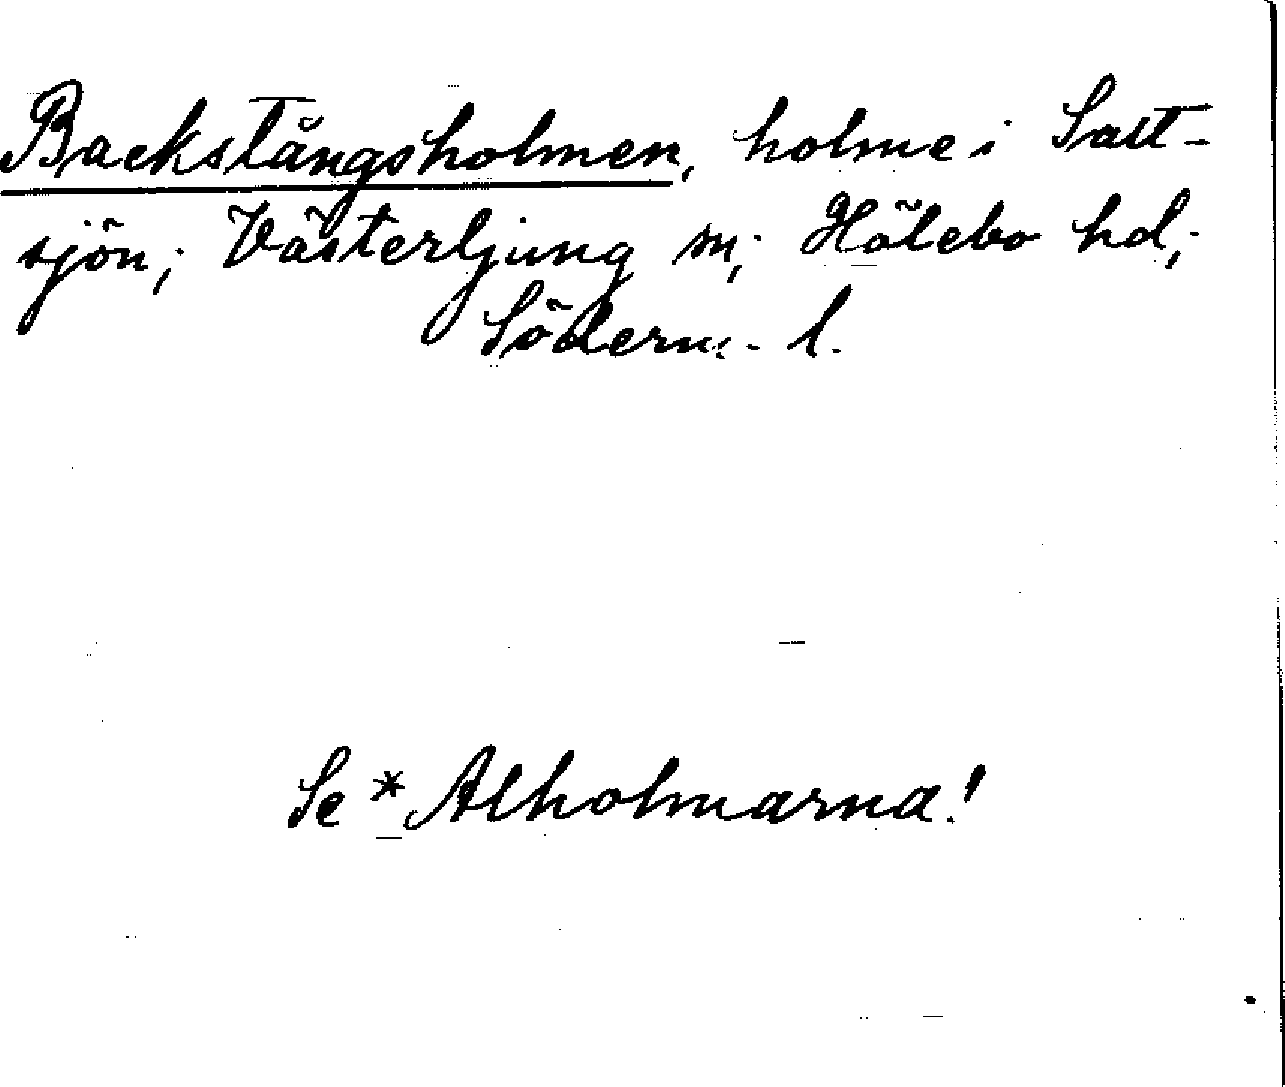 Backstångsholmen, holme i Salt-
sjön; Västerljung sn; Hölebo hd;
Söderm. l.
Se *Alholmarna!